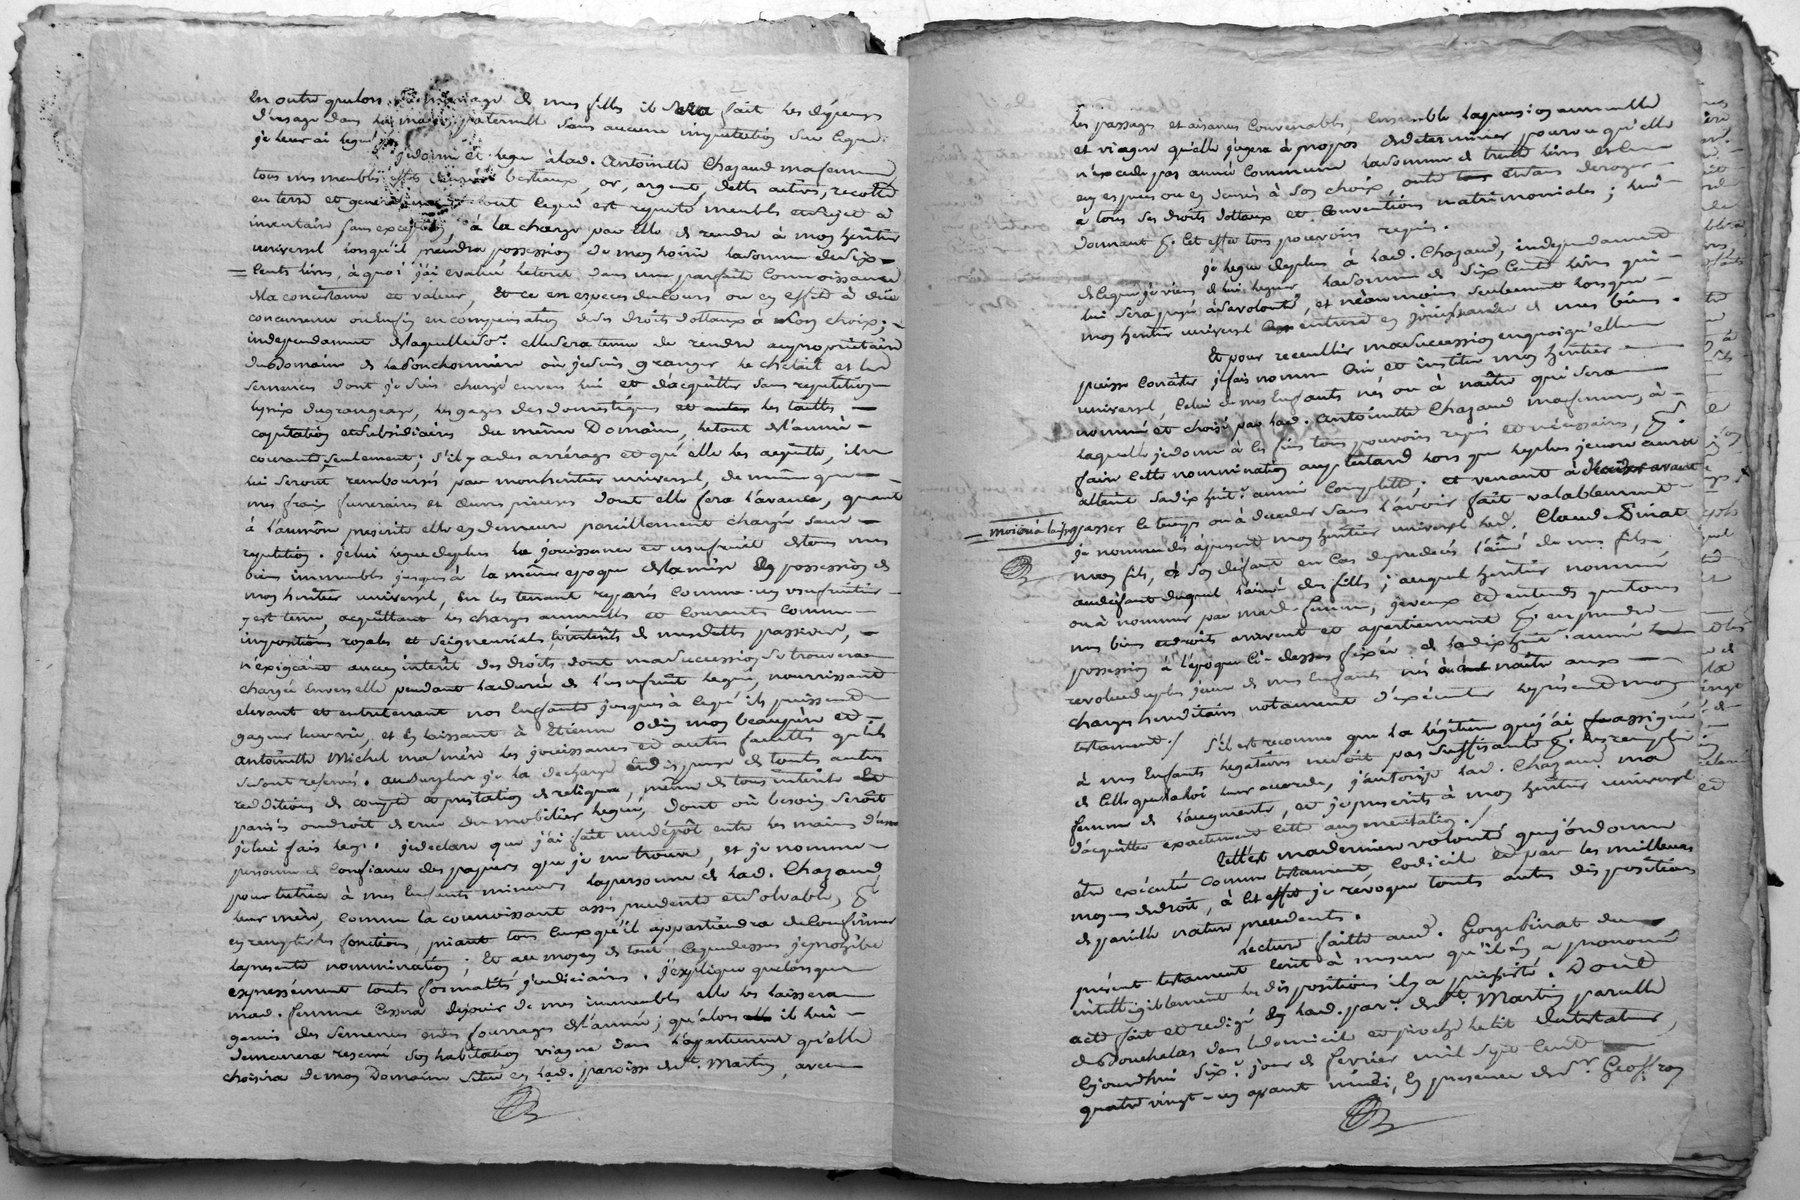 En outre que lors du mariage de mes filles il sera fait les dépenses
d'usage dans la maison paternelle sans aucune imputation sur legs
je leur ai legué
je donne et legue à lad. Antoinette Chazaud ma femme
tous mes meubles effets denrées bestiaux, or, argent, dettes actives, recolte
en terre et generalement tout ce qui est reputé meubles et sujet à
inventaire sans exception, à la charge par elle de rendre à mon heritier
universel lorsqu'il prendra possession de mon hoirie la somme de six
Cents livres, à quoi j'ai evalué le tout dans une parfaite connoissance
de la consistance et valeur, et ce en especes du cours ou en effets à due
concurrence ou enfin en compensation de ses droits dottaux à son choix;
independamment de laquelle so.e elle sera tenue de rendre au proprietaire
du Domaine de la Sonchonniere où je suis granger le chetail et les
semences dont je suis chargé envers lui et d'acquitter sans repetition
le prix du grangeage, les gages des domestiques et autres les tailles
capitation et subsidiaires du même Domaine, le tout de l'année
courante seulement; s'il y a des arrérages et qu'elle les acquitte, ils
lui seront remboursés par mon heritier universel, de même que
mes frais funeraires et œuvres pieuses dont elle fera l'avance, quant
à l'aumône prescrite elle en demeure pareillement chargée sans
repetition. je lui legue de plus la jouissance et usufruit de tous mes
biens immeubles jusques à la même epoque de la mise en possession de
mon heritier universel, en les tenant reparés comme un usufruitier
y est tenu, acquittant les charges annuelles et courantes comme
impositions royales et seigneuriales, interêts de mes dettes passives,
n'exigeant aucun interêt des droits dont ma succession se trouvera
chargée envers elle pendant la durée de l'usufruit legué, nourrissant
elevant et entretenant nos Enfants jusques à ce qu'ils puissent
gagner leur vie, et en laissant à Etienne Odin mon beaupère et
antoinette Michel ma mère les jouissances et autres facultés qu'ils
se sont reservés. au surplus je la decharge et dispense de toutes autres
redditions de compte et prestation de reliqua, même de tous interêts
parisis ou droit de crue du mobilier legué, dont où besoin seroit
je lui fais legs. je declare que j'ai fait un dépôt entre les mains d'une
personne de confiance des papiers que je me trouve, et je nomme
pour tutrice à mes Enfants mineurs la personne de lad. Chazaud
leur mère, comme la connoissant assés prudente et solvable, p.r
en remplir les fonctions, priant tous ceux qu'il appartiendra de confirmer
la presente nomination; Et au moyen de tout ce que dessus je prohibe
expressément toutes formalités judiciaires. j'explique que lorsque
mad. femme cessera de jouir de mes immeubles elle les laissera
garnis des semences et des fourrages de l'année; qu'alors elle il lui
demeurera reservé son habitation viagere dans l'appartement qu'elle
choisira de mon Domaine situé en lad. paroisse de St. Martin, avec
les passages et aisances convenables, Ensemble la pension annuelle
et viagere qu'elle jugera à propos de determiner pourvu qu'elle
n'excede pas année commune la somme de trente livres
en especes ou en denrés à son choix, outre et sans deroger
a tous ses droits dottaux et conventions matrimoniales; lui
donnant p.r cet effet tous pouvoirs requis.
je legue de plus à lad. Chazaud, independamment
de ce que je viens de lui leguer la somme de six Cents livres qui
lui sera payé à sa volonté, et néanmoins seulement lorsque
mon heritier universel entrera en jouissance de mes biens.
Et pour recueillir ma succession en quoi qu'elle
puisse consister je fais nomme crée et institue mon heritier
universel, celui de mes Enfants nés ou à naître qui sera
nommé et choisi par lad. Antoinette Chazaud ma femme, à
laquelle je donne à ces fins tous pouvoirs requis et nécessaires, p.r
faire cette nomination au plus tard lors que le plus jeune aura
atteint sa dix huit.e année complette; et venant à deceder avant
= moi ou à laisser passer le temps ou à deceder sans l'avoir fait valablement
je nomme dès à present mon heritier universel led. Claude Pinat
mon fils, et son defaut en cas de predecès l'aîné de mes fils
au defaut duquel l'ainée des filles; auquel heritier nommé
ou à nommer par mad. femme, je veux et entends que tous
mes biens et droits arrivent et apartiennent p.r en prendre
possession à l'époque ci-dessus fixée de la dix huit.e année
revolue du plus jeune de mes Enfants nés ou à naître aux
charges hereditaires notamment d'exécuter le présent mon
testament./ S'il est reconnu que la légitime que j'ai assignée
à mes Enfants legataires ne soit pas suffisante p.r les remplir
de celle que la loi leur accorde, j'autorise lad. Chazaud ma
femme de l'augmenter, et je prescrits à mon heritier universel
d'acquitter exactement cette augmentation./
telle est ma derniere volonté que j'ordonne
être exécutée comme testament, codicile et par les meilleurs
moyens de droit, à cet effet je revoque toutes autres dispositions
de pareille nature precedentes.
Lecture faitte aud. George Pinat du
présent testament ecrit à mesure qu'il en a prononcé
intelligiblement les dispositions il y a persisté. Dont
acte fait et redigé en lad. par.e de St. Martin parcelle
de Bouchalas dans le domicile et proche le lit du testateur,
cejourdhui six.e jour de fevrier mil sept cent
quatre vingt-un apant midi, en presence de S.r Geoffroy